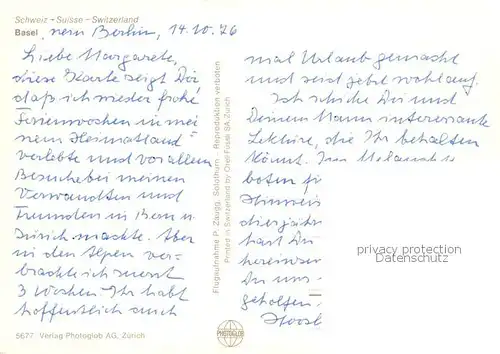 Schweiz - Suisse - Switzerland
Basel, nem Berlin, 14.10.76
Liebe Margarete,
diese Karte zeigt Dir
daß ich wieder frohe
Ferienwochen in mei
nem Heimatland
verlebte und vor allem
Besuche bei meinen
Verwandten und
Freunden in Bern u
Zürich machte. Aber
in den Alpen ver-
brachte ich meist
3 Wochen. Ihr habt
hoffentlich auch
5677 Verlag Photoglob AG, Zürich
Flugaufnahme P. Zaugg, Solothurn - Reproduktion verboten
Printed in Switzerland by Orell Füssli SA Zürich
PHOTOGLOB
mal Urlaub gemacht
und seid jetzt wohlauf.
Ich schicke Dir und
Deinem Mann interessante
Lektüre, die Ihr behalten
könnt.
boten
Hinweis
diesjähr
hast Du
hereinwer
Du uns
geholfen
privacy protection
Datenschutz